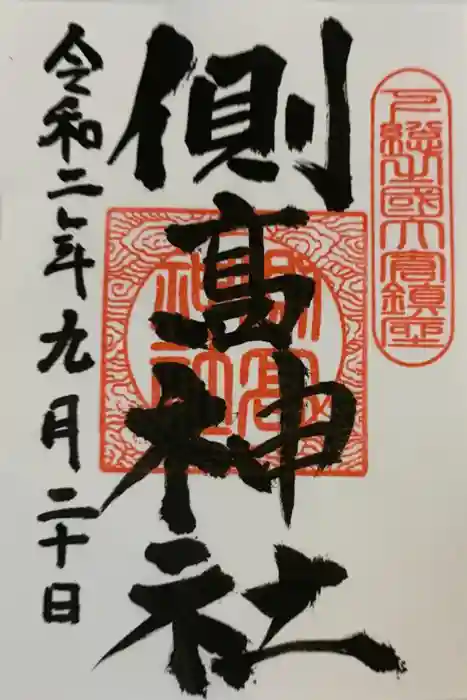 下総國大倉鎮座
側高神社
側高神社
令和二年九月二十日